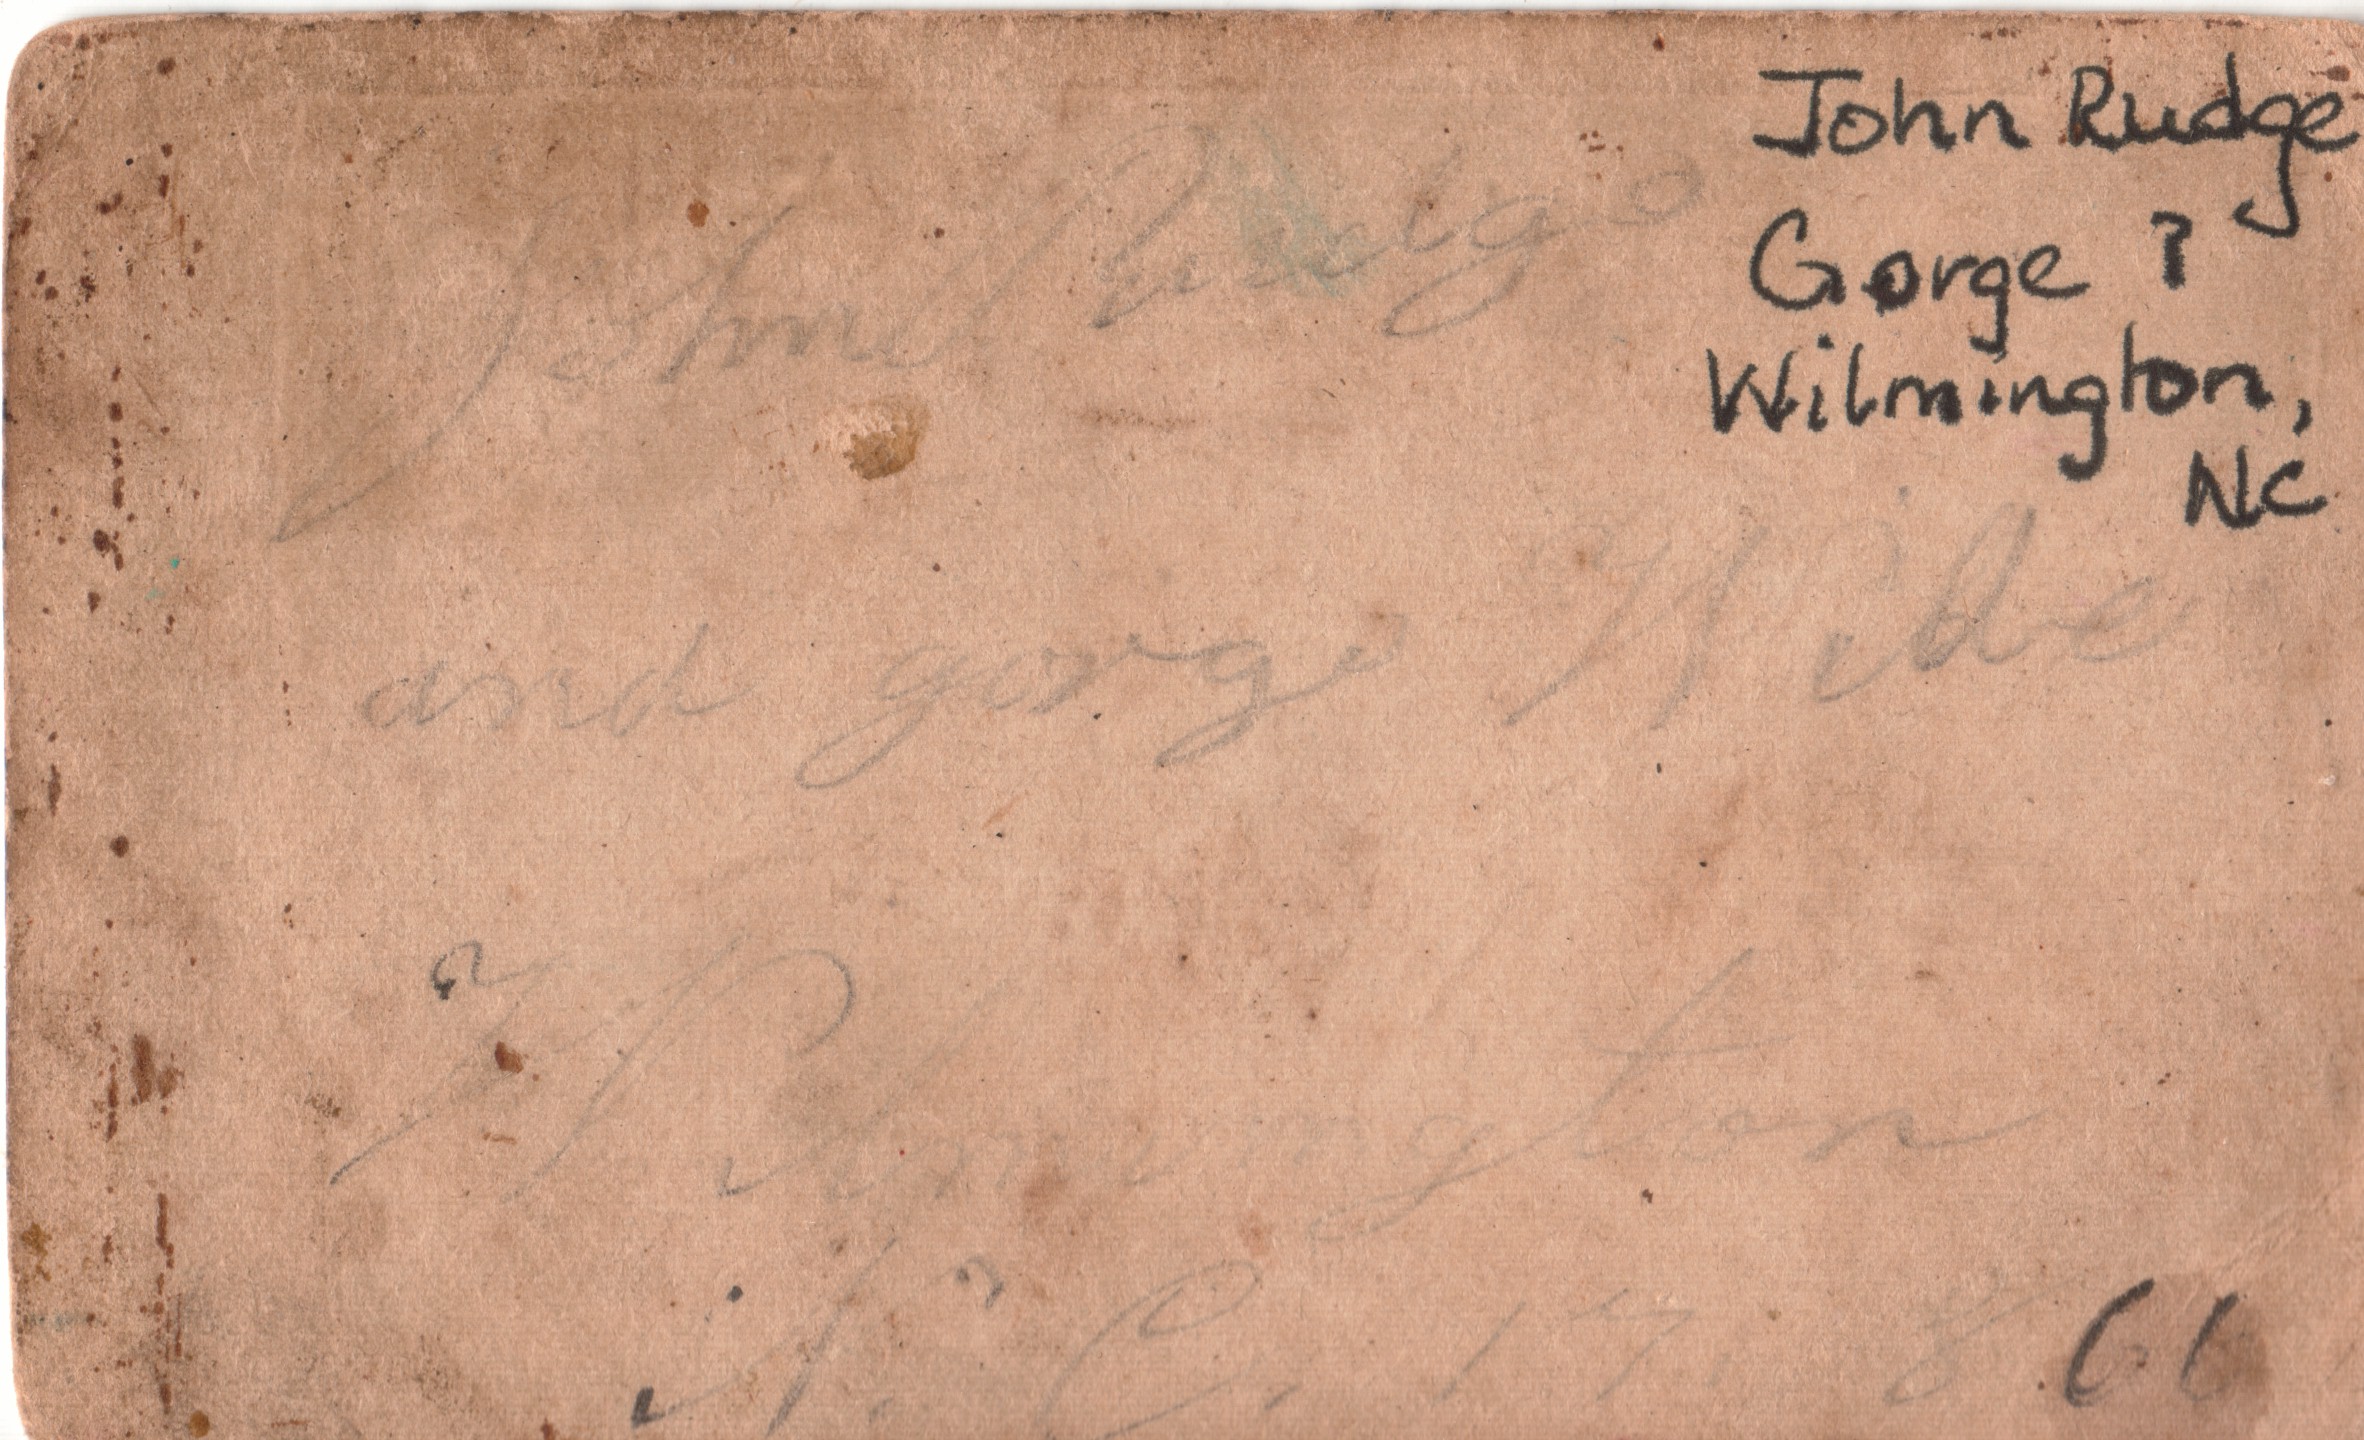 John Rudge
Gorge ?
Wilmington,
NC
John Rudge
and gorge
Wilmington
N. C.